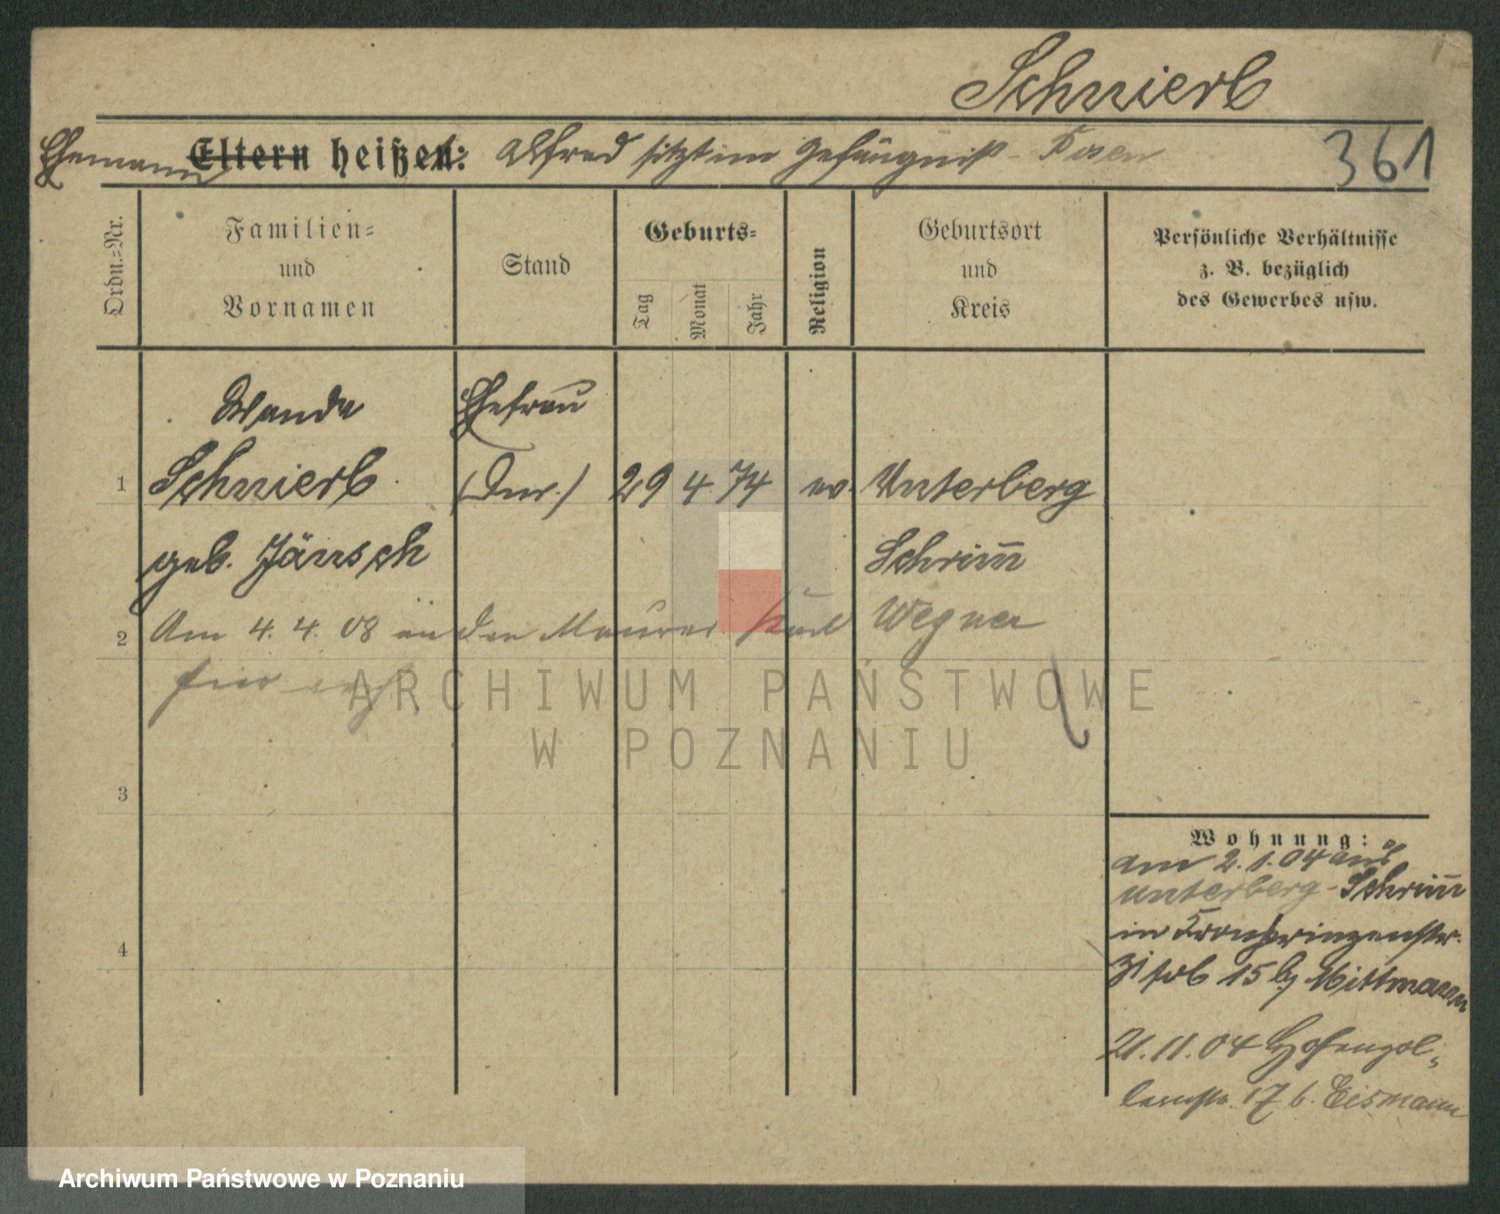 Schnierb
Ehemann Eltern heißen: Alfred sitzt im Gefängniß - Posen
361
Ordn.=Nr.
Familien=
und
Vornamen
Stand
Geburts=
Tag
Monat
Jahr
Religion
Geburtsort
und
Kreis
Persönliche Verhältnisse
z. B. bezüglich
des Gewerbes usw.
Wanda Ehefrau
1 Schnierb 29 4 74 ev. Unterberg
geb. Jänsch Schrim̅
2 Am 4. 4. 08 an den Maurer Karl Wegner
3
4
Wohnung:
am 2.1.04 aus
Unterberg-Schrim̅
in Kronprinzenstr.
15 b/ Mittmann
21.11.04 Hohenzol=
lernstr. 17 b. Eismann
ARCHIWUM PAŃSTWOWE
W POZNANIU
Archiwum Państwowe w Poznaniu